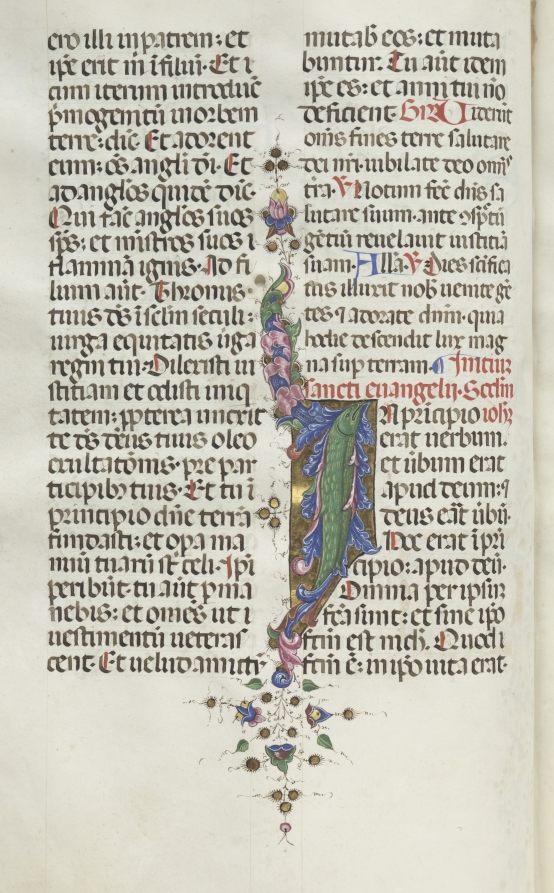 ero illi in patrem: et
ip̄e erit m̄ i filiū. Et i
cum iterum introduc̄
p̄mogenitū in orbem
terre: dic̄. Et adorent
eum: oēs angli di. Et
ad anglos quidē dic̄.
Qui fac̄ anglos suos
sp̄s: et mīstros suos i
flammā ignis. Ad fi
lium aūt. Thronus
tuus ds̄ ī sclm̄ seculi:
uirga equitatis uga
regni tui. Dilexisti iu
stitiam et odisti iniq̄
tatem: propterea unxit
te ds̄ deus tuus oleo
exultatōnis. pre par
ticipibꝫ tuis. Et tu ī
principio dn̄e terrā
fundasti: et opa ma
nuū tuarū st̄ celi. Ip̄i
peribūt. tu aūt p̄ma
nebis: et om̄es ut i
uestimentū ueteras
cent. Et uelud amictū
mutab̄ eos: et muta
buntur. Tu aūt idem
ip̄e es: et anni tui nō
deficient. Gr̄. Uiderūt
om̄s fines terre salutare
dei nr̄i. iubilate deo om̄s
tr̄a. ℣ Notum fēc dn̄s sa
lutare suum. ante ꝯspctū
gētiū reuelauit iustitiā
suam. Alla. ℣ Dies sc̄ifica
tus illuxit nob̄ uenite gē
tes ⁊ adorate dn̄m. quia
hodie descendit lux mag
na sup terram. Initiū
sancti euangelij. Scdm̄
IN principio ioh̄.
erat uerbum.
et ūbum erat
apud deum: ⁊
deus erat ūbū.
Hoc erat ī pri
cipio: apud deū.
Omnia per ipsū
fc̄a sunt: et sine ip̄o
fc̄m est nich̄. Quod
fc̄m ē: in ip̄o uita erat.